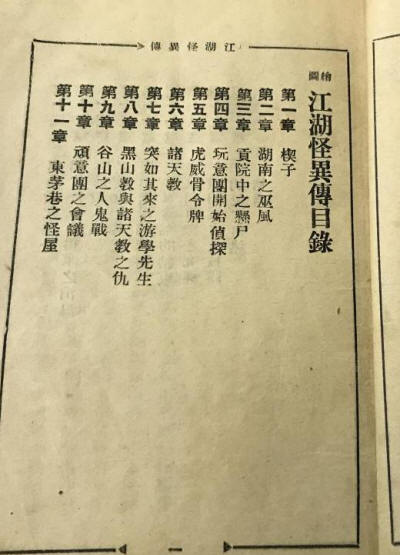 江湖怪異傳
繪圖
江湖怪異傳目錄
第一章 楔子
第二章 湖南之巫風
第三章 貢院中之懸尸
第四章 玩意團開始偵探
第五章 虎威骨令牌
第六章 諸天教
第七章 突如其來之游學先生
第八章 黑山教與諸天教之仇
第九章 谷山之人鬼戰
第十章 頑意團之會議
第十一章 東茅巷之怪屋
一